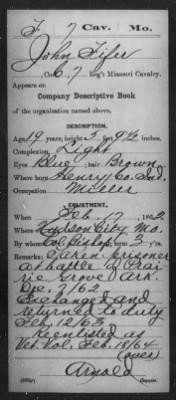 F 7 Cav. Mo.
John Fifer
Co. F. 7 Reg't Missouri Cavalry.
Appears on
Company Descriptive Book
of the organization named above.
DESCRIPTION.
Age 19 years; height 5 feet 9½ inches.
Complexion Light
Eyes Blue; hair Brown
Where born Henry Co. Ind.
Occupation Miller
ENLISTMENT.
When Feb. 17, 1862
Where Hudson City Mo.
By whom Col Bishop; term 3 y'rs.
Remarks: Taken prisoner
at battle of Prai
rie Grove Ark.
Dec. 7/62
Exchanged and
returned to duty
Feb. 12/63
Reenlisted as
Vet. Vol. Feb. 18/64
(over)
Arnold
Copyist.